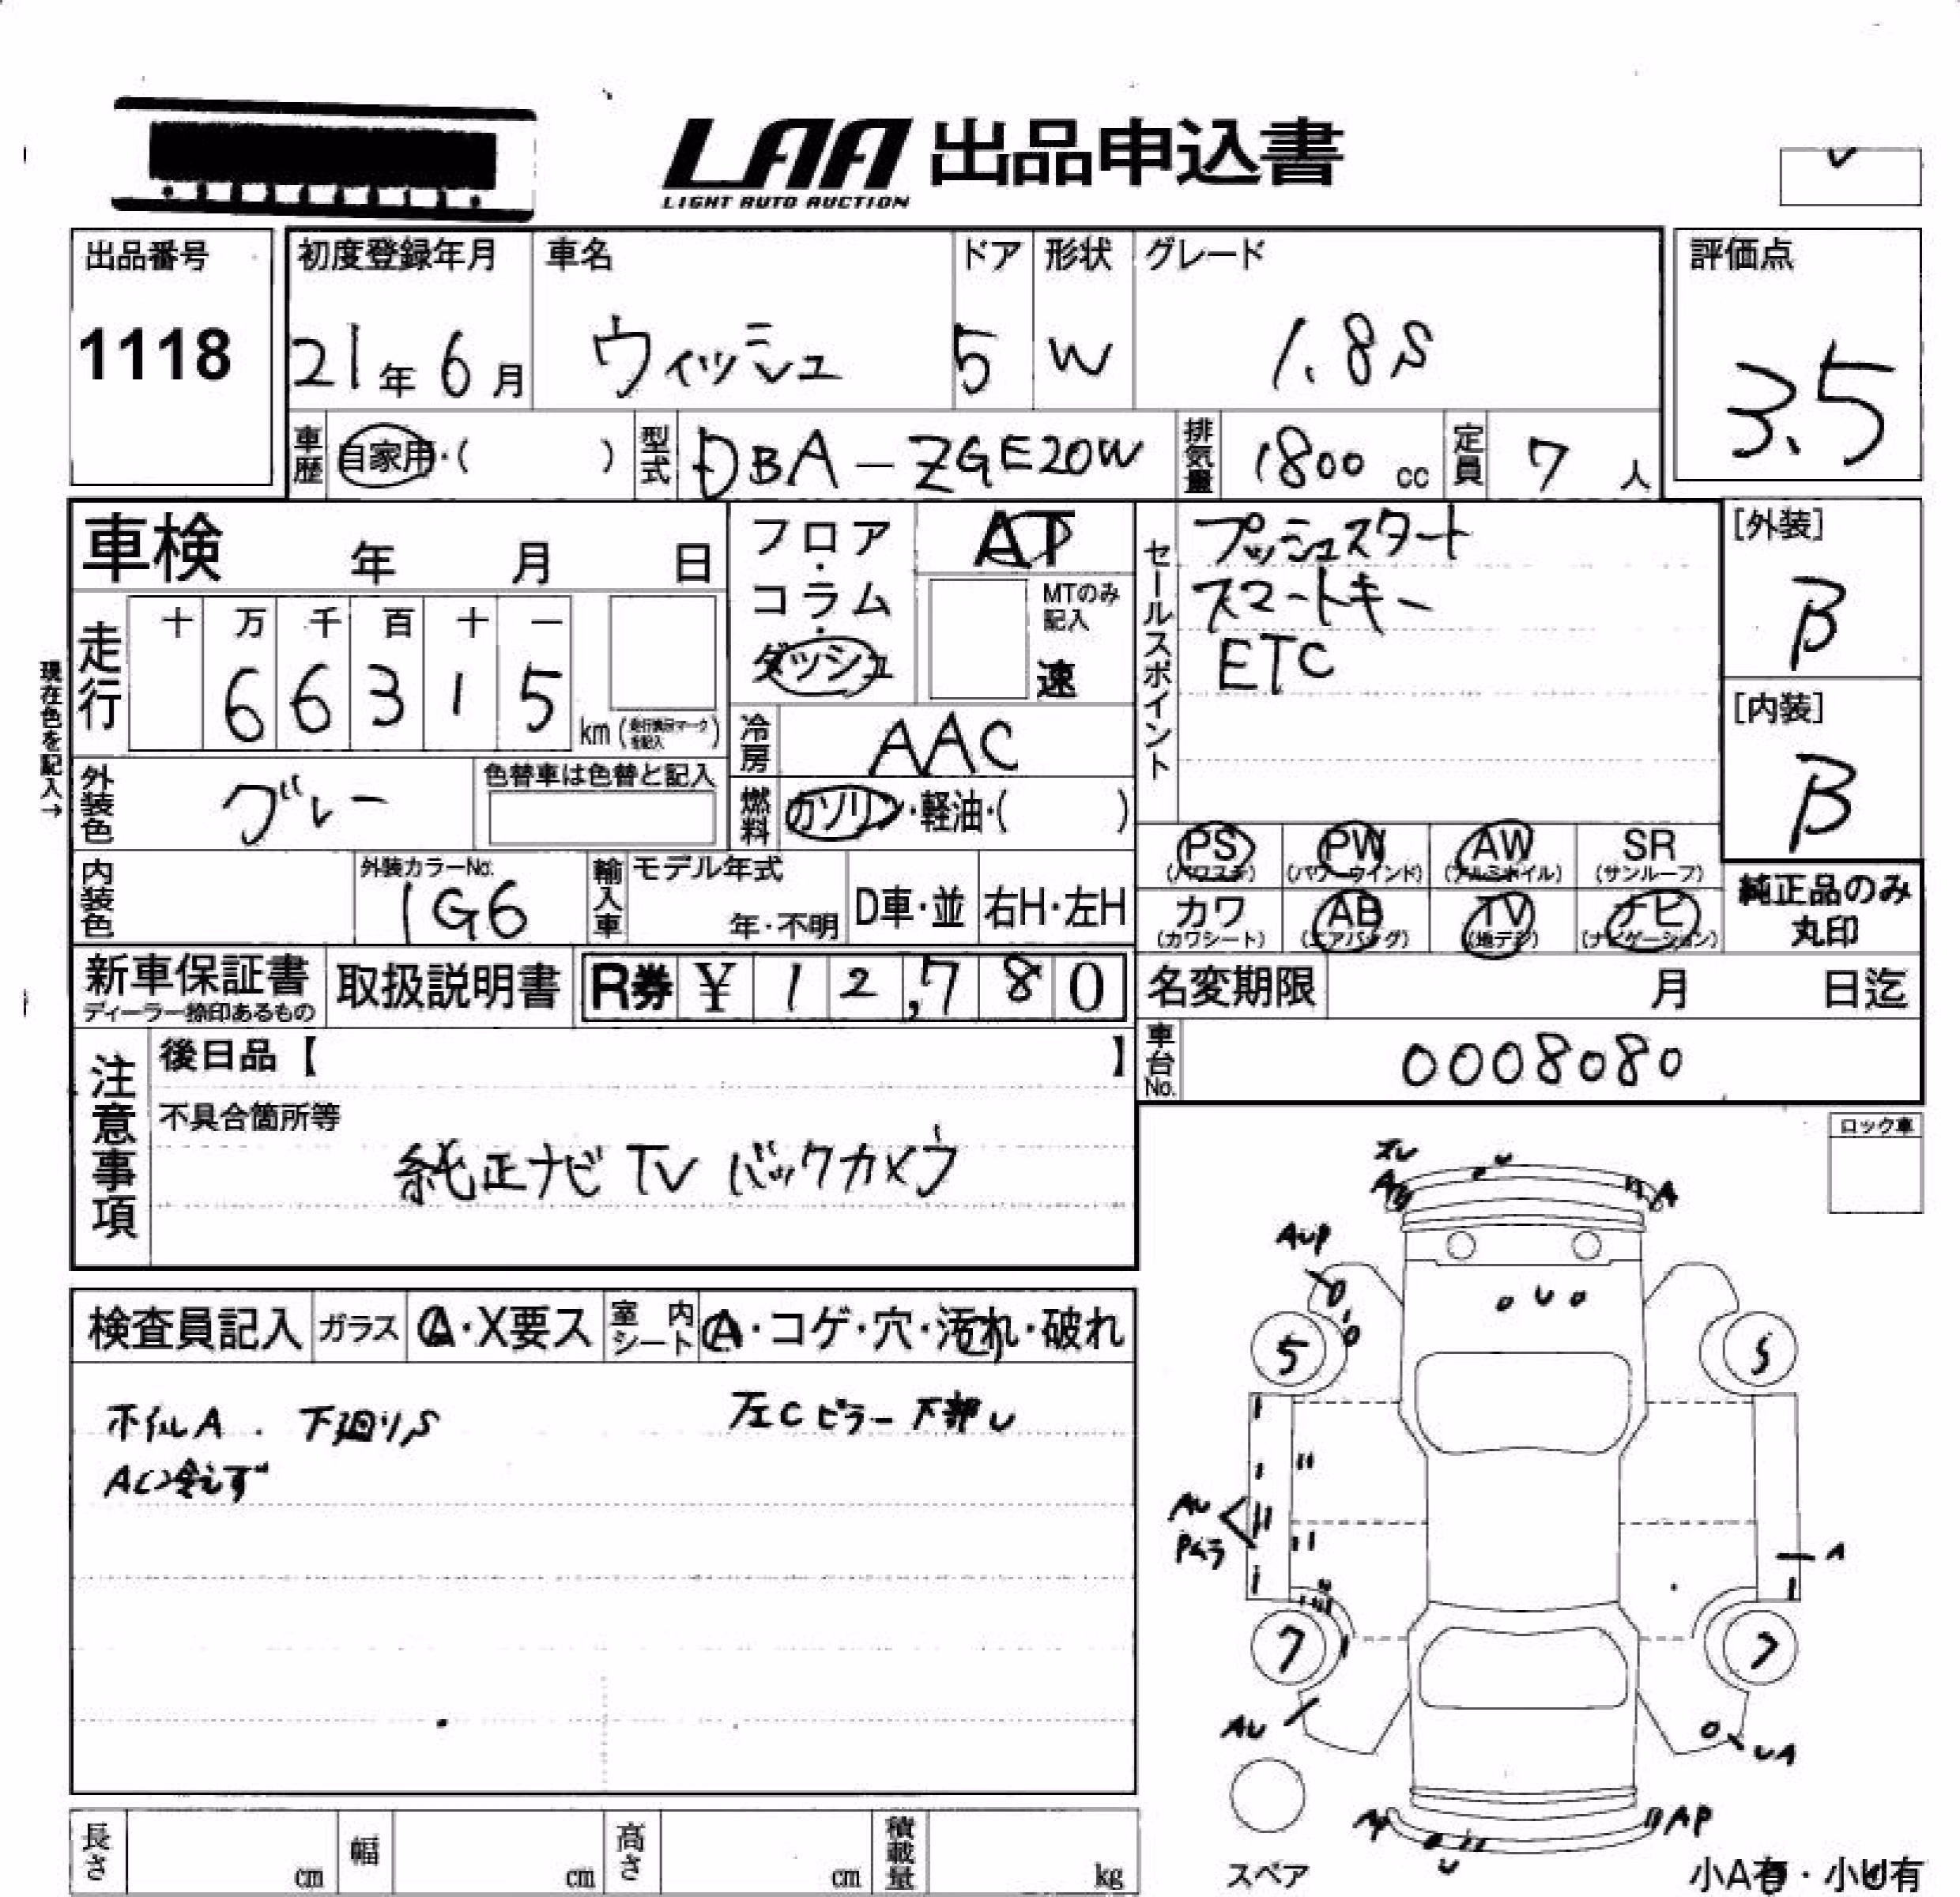 LAA 出品申込書
LIGHT AUTO AUCTION
出品番号
1118
初度登録年月
21年6月
車名
ウィッシュ
ドア
5
形状
W
グレード
1.8S
評価点
3.5
車歴
自家用・( )
型式
DBA-ZGE20W
排気量
1800cc
定員
7人
車検 年 月 日
走行
十 万 千 百 十 一
6 6 3 1 5
km
現在色を記入→
フロア・コラム・ダッシュ
AT
MTのみ記入
速
冷房
AAC
燃料
ガソリン・軽油・( )
セールスポイント
プッシュスタート
スマートキー
ETC
[外装]
B
[内装]
B
外装色
グレー
色替車は色替と記入
内装色
外装カラーNo.
1G6
輸入車
モデル年式
年・不明
D車・並
右H・左H
PS
(パワステ)
PW
(パワーウインド)
AW
(アルミホイル)
SR
(サンルーフ)
カワ
(カワシート)
AB
(エアバッグ)
TV
(地デジ)
ナビ
(ナビゲーション)
純正品のみ
丸印
新車保証書
ディーラー捺印あるもの
取扱説明書
R券 ¥ 12,780
名変期限 月 日迄
車台No.
0008080
注意事項
後日品【 】
不具合箇所等
純正ナビ TV バックカメラ
ロック車
検査員記入
ガラス
A・X要ス
室内シート
A・コゲ・穴・汚れ・破れ
ホイルA. 下廻りS
左Cピラー下部U
AC冷えず
A
A
AUP
U
5
5
AU
Pムラ
A
7
7
AU
UA
AP
AP
U
スペア
小A有・小U有
長さ cm
幅 cm
高さ cm
積載量 kg